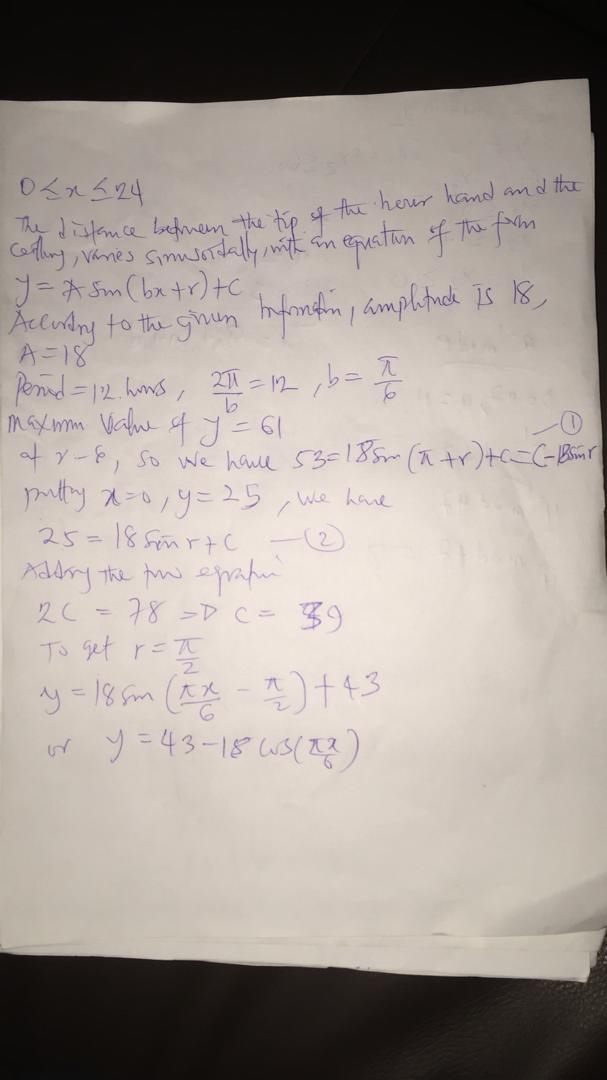 0 ≤ x ≤ 24
The distance between the tip of the hour hand and the
ceiling, varies sinusoidally, with an equation of the form
y = A sin(bx+r)+c
According to the given information, amplitude is 18,
A = 18
Period = 12 hours, 2π/b = 12, b = π/6
maximum value of y = 61
at x = 6, so we have 53 = 18 sin(π+r)+c = C-18 sin r —①
putting x=0, y = 25, we have
25 = 18 sin r + c —②
Adding the two equation
2C = 78 => C = 39
To get r = π/2
y = 18 sin(πx/6 - π/2) + 43
or y = 43 - 18 cos(πx/6)